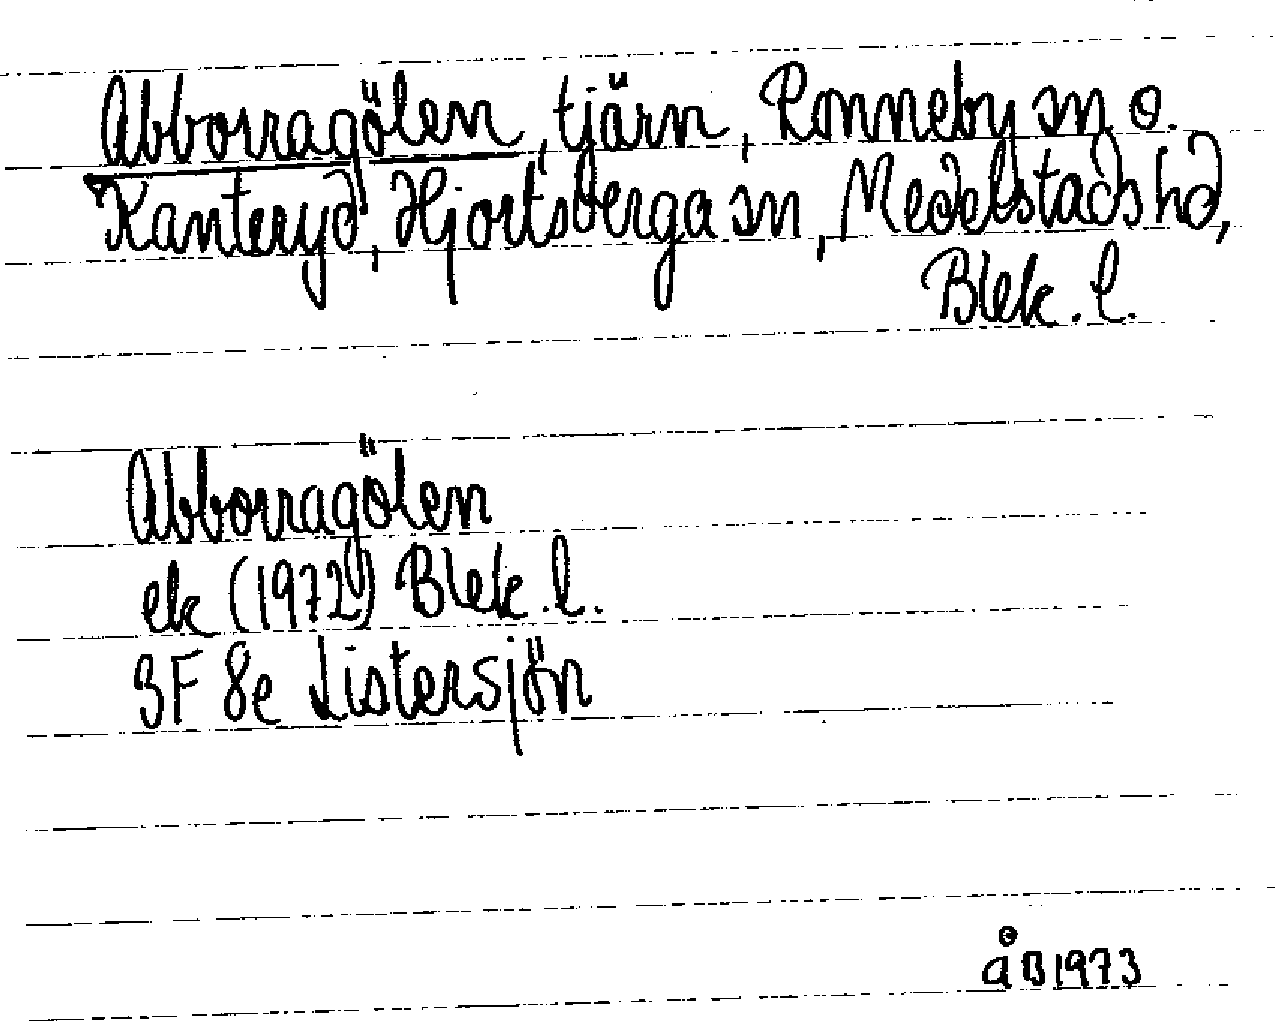 Abborragölen, tjärn, Ronneby sn o.
Kanteryd, Hjortsberga sn, Medelstads hd,
Blek. l.
Abborragölen
ek (1972) Blek. l.
3F 8e Listersjön
åB 1973